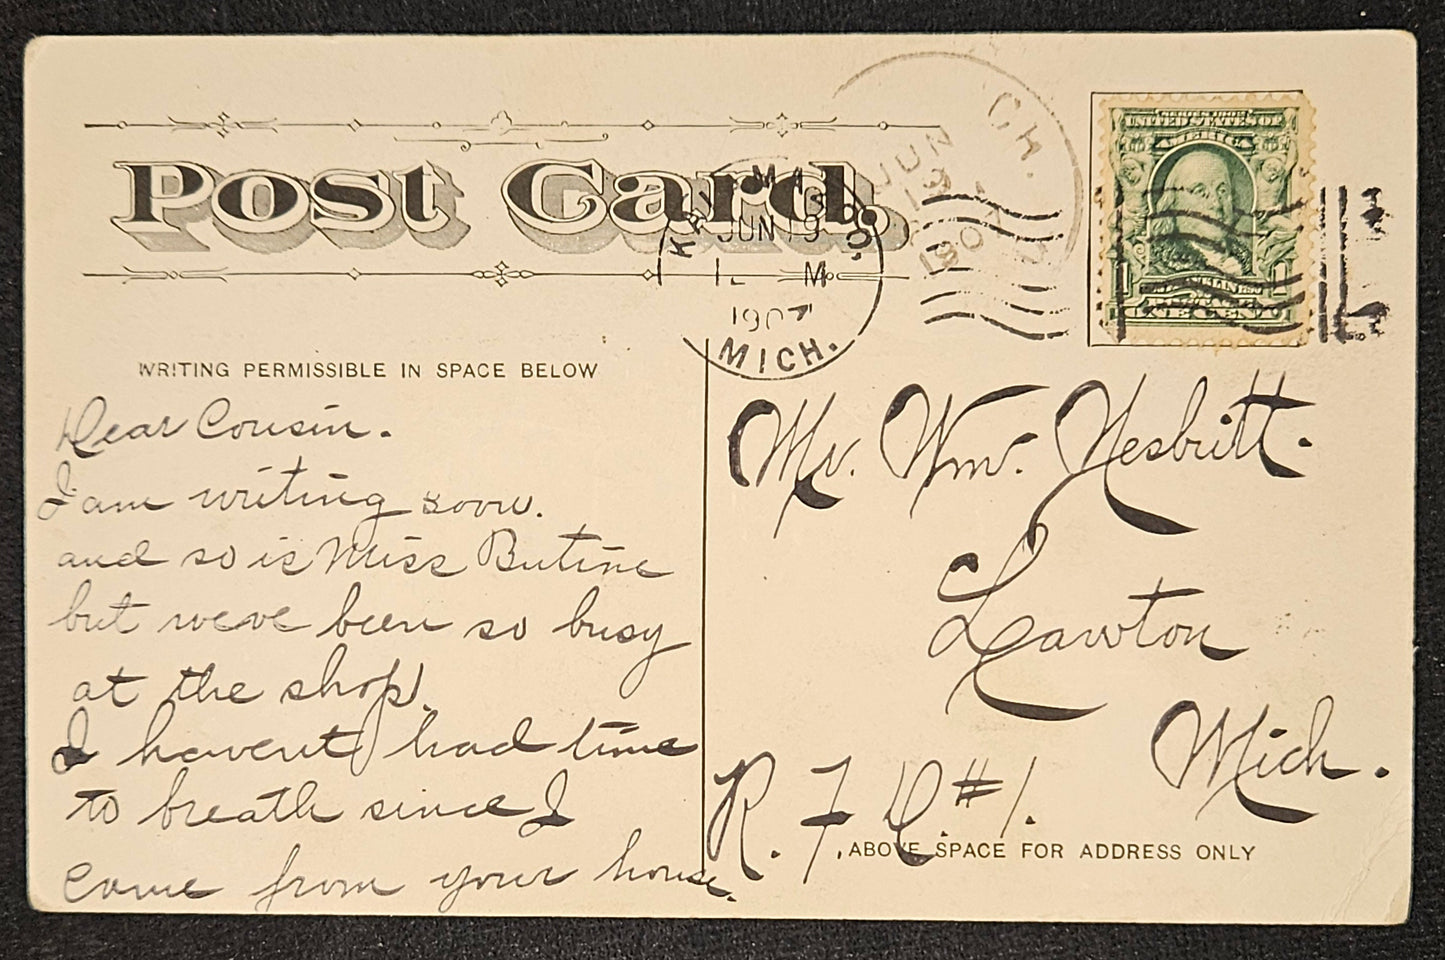 Post Card.
CH.
JUN
19
1907
KALAMAZOO,
JUN 19
M
1907
MICH.
UNITED STATES OF
AMERICA
1 1
FRANKLIN
ONE CENT
WRITING PERMISSIBLE IN SPACE BELOW
Dear Cousin.
I am writing soon.
and so is Miss Butine
but weve been so busy
at the shop.
I havent had time
to breath since I
came from your house.
Mr. Wm. Nesbritt.
Lawton
Mich.
R. F. D. #1.
ABOVE SPACE FOR ADDRESS ONLY